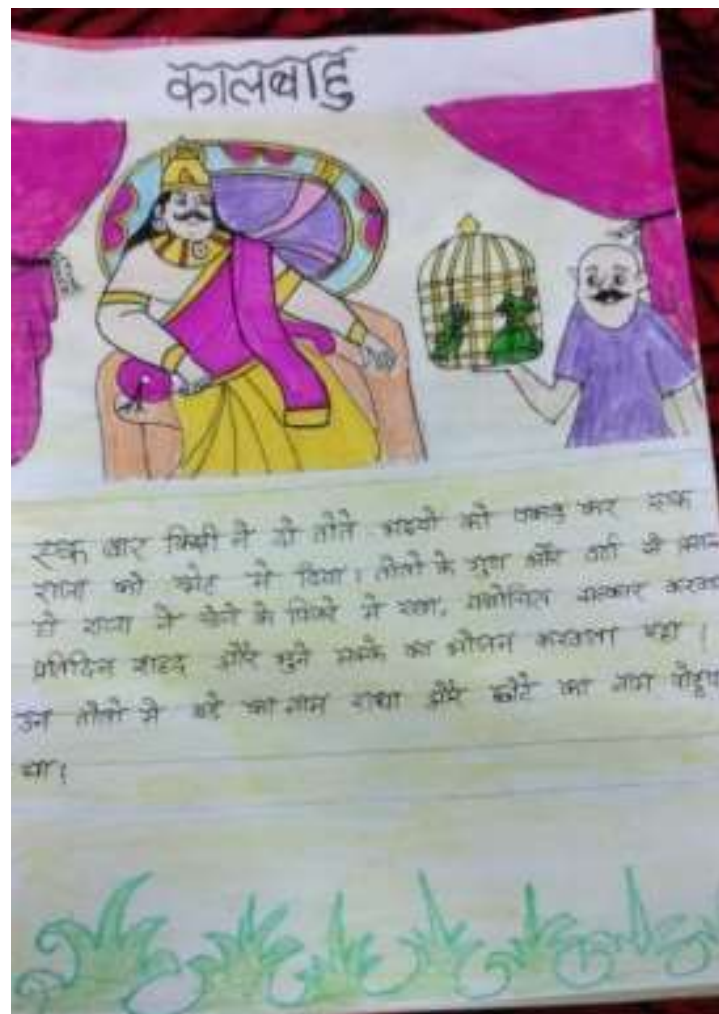 कालबाहु
एक बार किसी ने दो तोते भाइयो को पकड़ कर एक
राजा को भेंट में दिया। तोतो के गुण और वर्ण से प्रसन्न
हो राजा ने सोने के पिंजरे में रखा, यथोचित सत्कार करवा
प्रतिदिन शहद और भुने मक्के का भोजन करवाता रहा।
उन तोतो में बड़े का नाम राधा और छोटे का नाम पोट्ठपा
था।